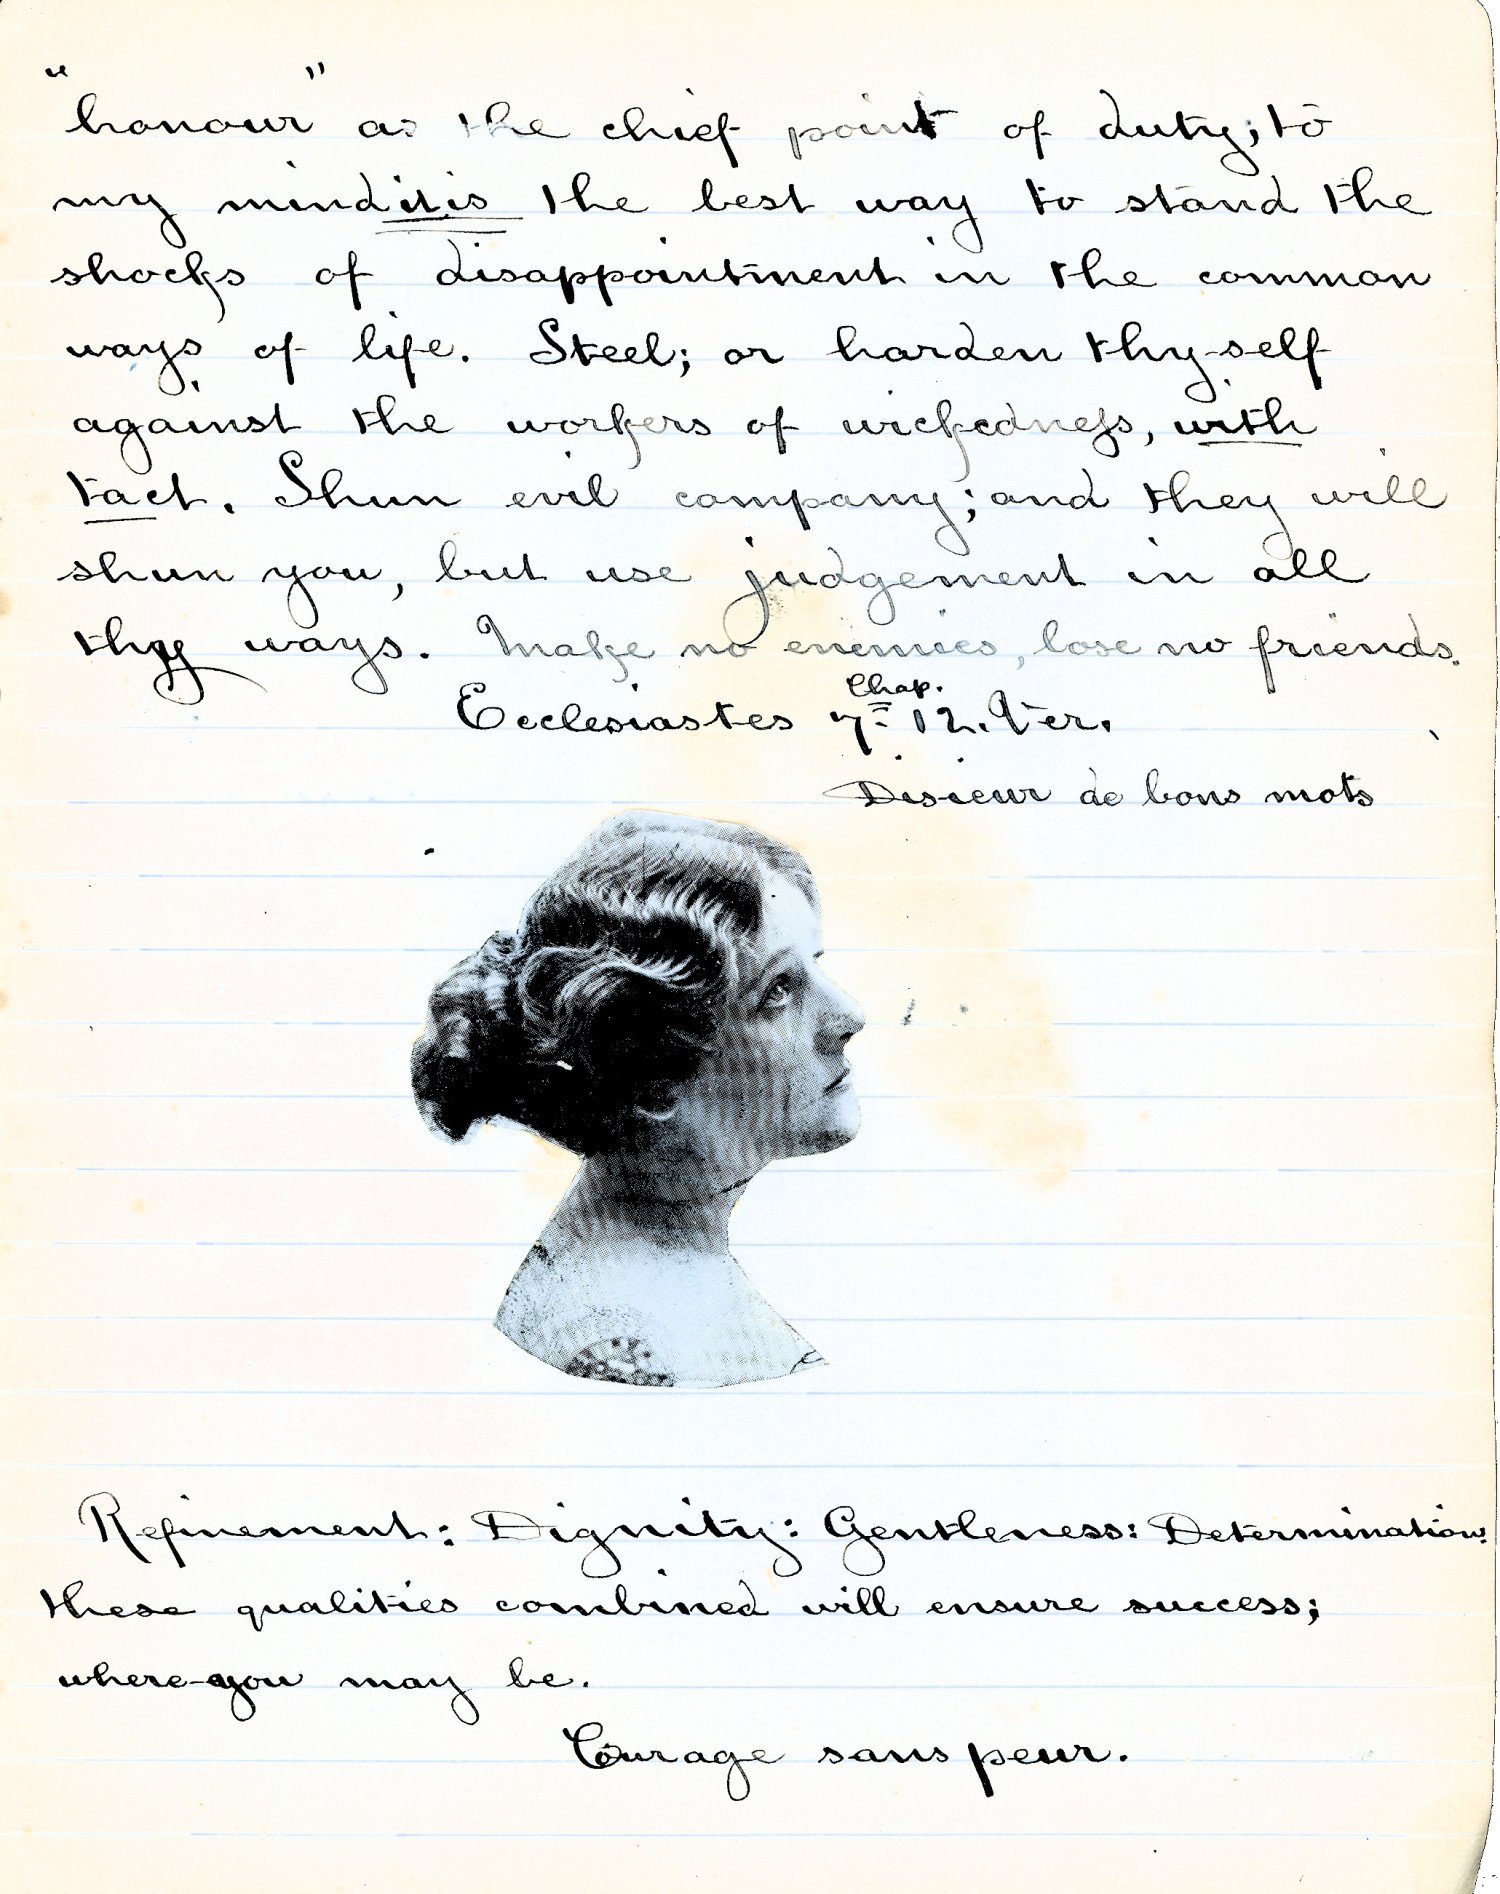 "honour" as the chief point of duty; to
my mind it is the best way to stand the
shocks of disappointment in the common
ways of life. Steel; or harden thy-self
against the workers of wickedness, with
tact. Shun evil company; and they will
shun you, but use judgement in all
thy ways. Make no enemies, lose no friends.
Ecclesiastes 7= Chap. 12. Ver.
Disieur de bons mots
Refinement: Dignity: Gentleness: Determination:
these qualities combined will ensure success;
where-you may be.
Courage sans peur.